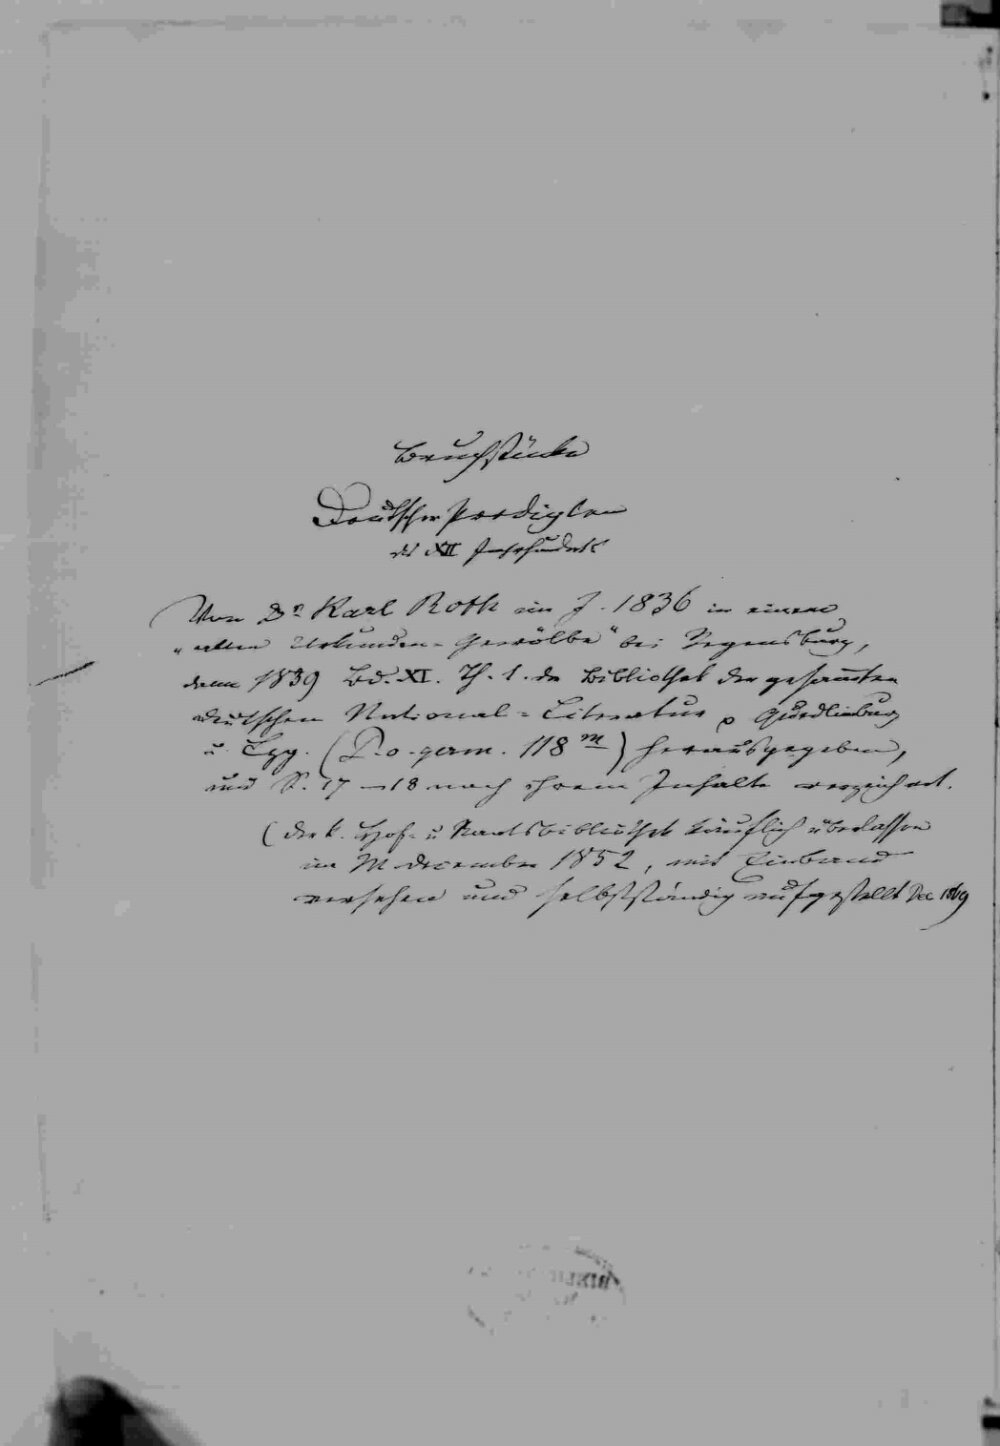 Bruchstücke
Deutscher Predigten
des XII Jahrhunderts
Von Dr Karl Roth im J. 1836 in einem
„alten Urkunden-Gewölbe“ bei Regensburg,
dann 1839 Bd. XI. Th. 1. der Bibliothek der gesammten
deutschen National-Literatur, Quedlinburg
u. Lpg. (P.o.germ. 118 m) herausgegeben,
und S. 17–18 nach ihrem Inhalte verzeichnet.
(der k. Hof- u Staatsbibliothek käuflich überlassen
im M December 1852, mit Einband
versehen und selbstständig aufgestellt Dec 1869